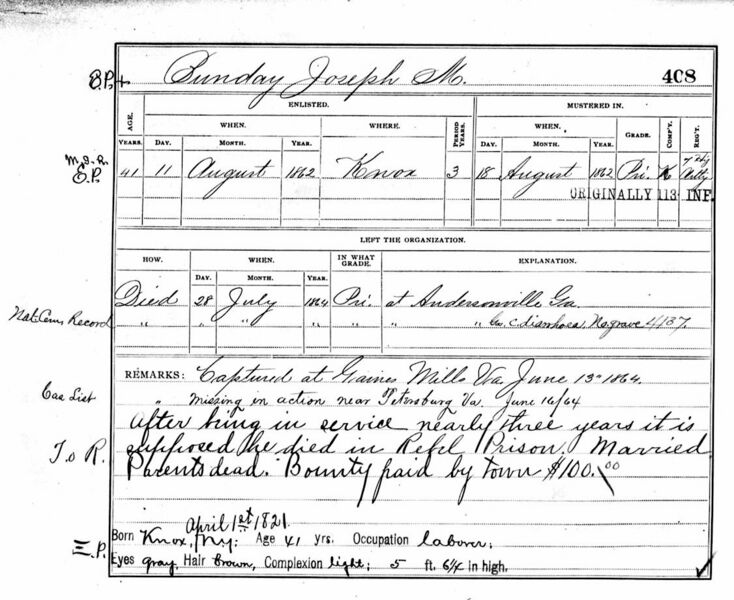 Bunday Joseph M. 408
B.P.+
ENLISTED. MUSTERED IN.
AGE. WHEN. WHERE. PERIOD YEARS. WHEN. GRADE. COMP'Y. REG'T.
YEARS. DAY. MONTH. YEAR. DAY. MONTH. YEAR.
E.P. 41 11 August 1862 Knox 3 18 August 1862 Pri. K 7 Hy Arty
ORIGINALLY 113 INF.
LEFT THE ORGANIZATION.
HOW. WHEN. IN WHAT GRADE. EXPLANATION.
DAY. MONTH. YEAR.
Died 28 July 1864 Pri. at Andersonville Ga.
Nat. Cem. Record " " " " " " " C. diarrhoea, No. grave 4137.
REMARKS: Captured at Gaines Mills Va June 13" 1864.
Cas List " Missing in action near Petersburg Va. June 16/64
After being in service nearly three years it is
T. o R. supposed he died in Rebel Prison. Married
Parents dead. Bounty paid by town $100.00
April 1st 1821.
Born Knox, N.Y.; Age 41 yrs. Occupation laborer;
E.P.
Eyes gray, Hair brown, Complexion light; 5 ft. 6¼ in high.